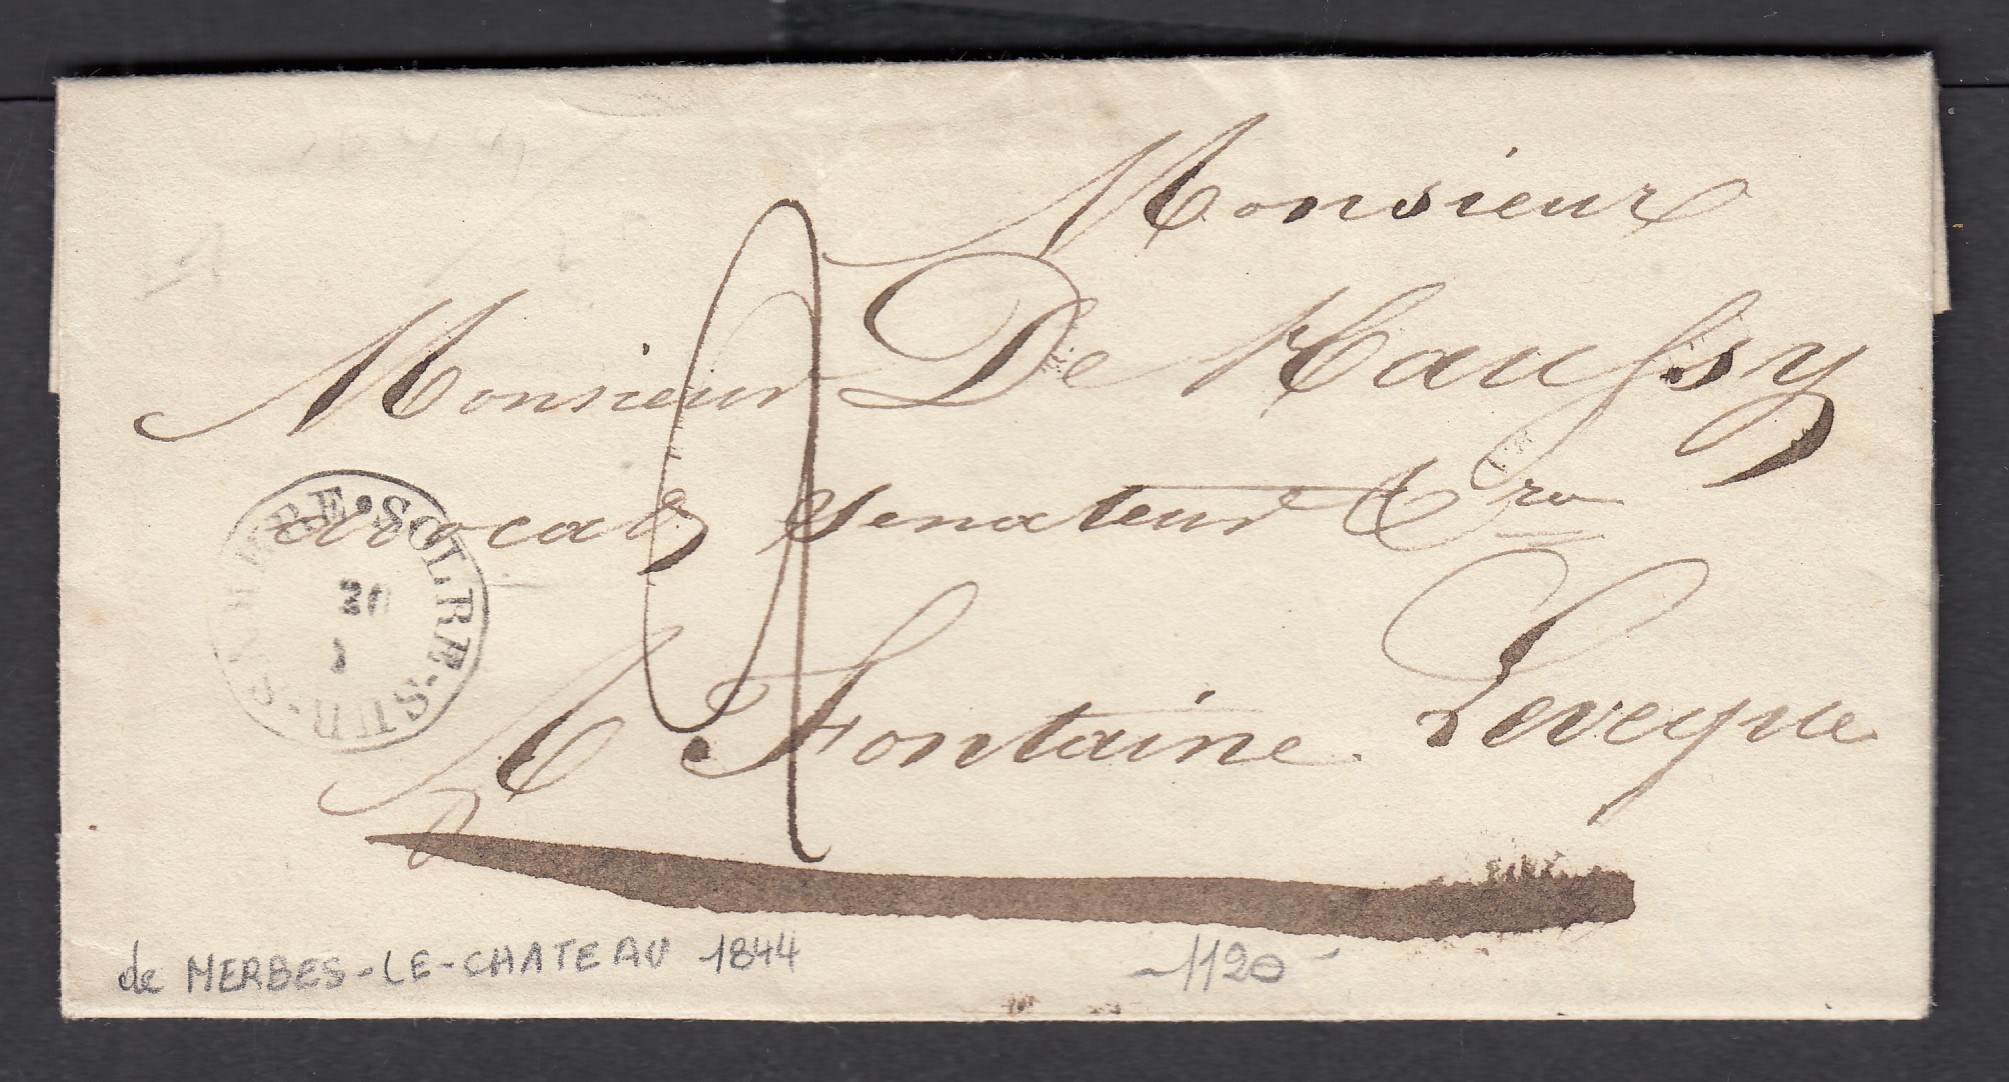 Monsieur
Monsieur De Haussy
avocat Senateur &ra
A Fontaine Leveque
2
SOLRE-SUR-SAMBRE
20
1
de MERBES-LE-CHATEAU 1844
-1120-